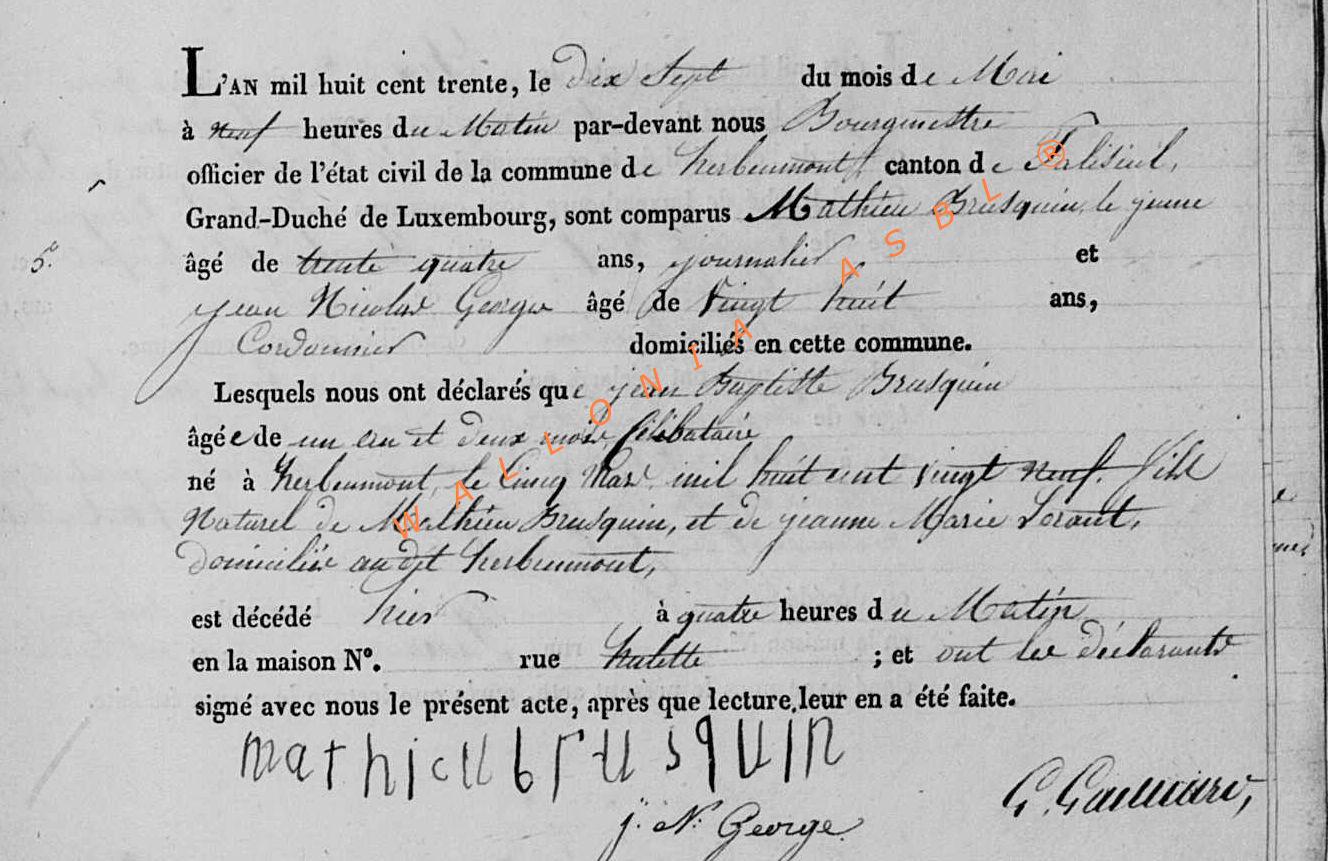 L'AN mil huit cent trente, le dix Sept du mois de Mai
à neuf heures du Matin par-devant nous Bourguestre
officier de l'état civil de la commune de herbeumont, canton de Paliseul,
Grand-Duché de Luxembourg, sont comparus Mathieu Brusquin, le jeune
5e.
âgé de trente quatre ans, journalier et
jean Nicolas George âgé de Vingt huit ans,
Cordonnier domiciliés en cette commune.
Lesquels nous ont déclarés que jean Baptiste Brusquin
âgé e de un an et deux mois, Célibataire
né à herbeumont, le Cinq Mars mil huit cent vingt neuf. fils
Naturel de Mathieu Brusquin, et de jeanne Marie
domiciliée au dit herbeumont,
est décédé hier à quatre heures du Matin
en la maison N°. rue ; et ont les déclarants
signé avec nous le présent acte, après que lecture leur en a été faite.
mathieu brusquin
j. N. George
WALLONIA ASBL ®